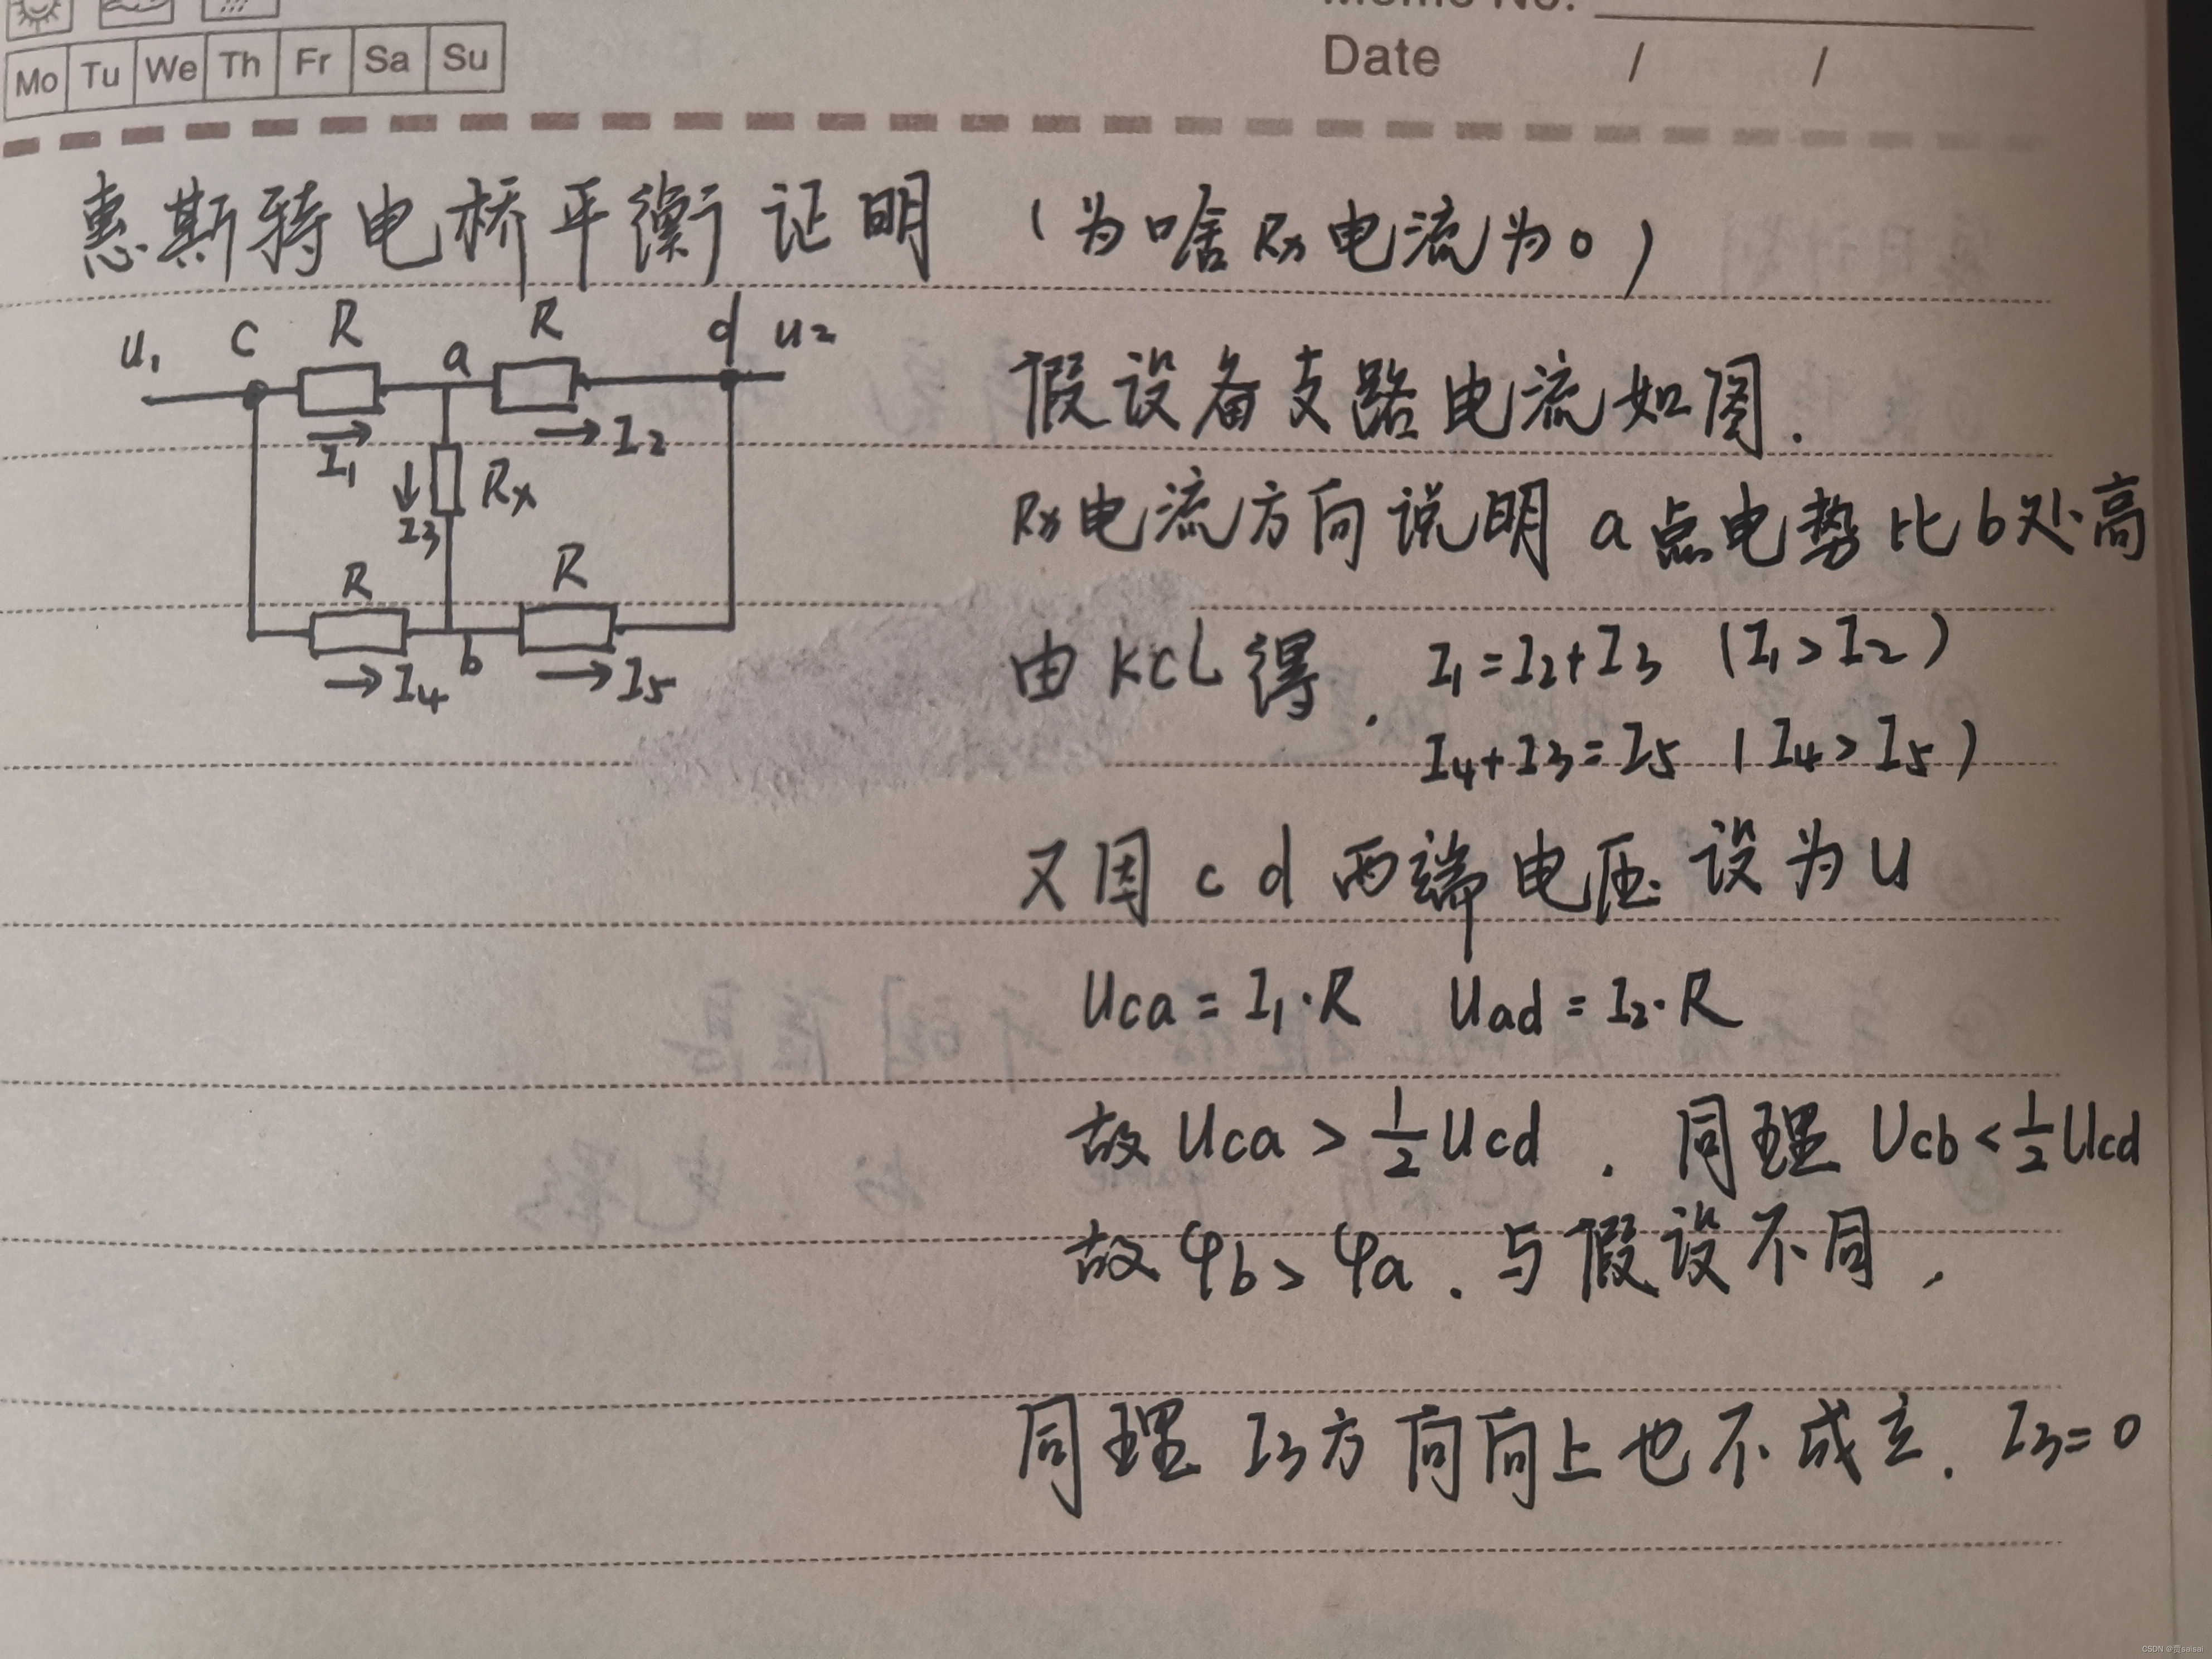 Memo No.
Date / /
Mo Tu We Th Fr Sa Su
惠斯特电桥平衡证明 (为啥Rx电流为0)
U1 c R a R d U2
I1 I2
I3 Rx
R R
I4 b I5
假设各支路电流如图.
Rx电流方向说明 a点电势比b处高
由KCL得. I1=I2+I3 (I1>I2)
I4+I3=I5 (I4>I5)
又因 c d 两端电压设为U
Uca = I1·R Uad = I2·R
故 Uca > 1/2 Ucd . 同理 Ucb < 1/2 Ucd
故 φb > φa . 与假设不同,
同理 I3方向向上也不成立. I3=0
CSDN @贾saisai